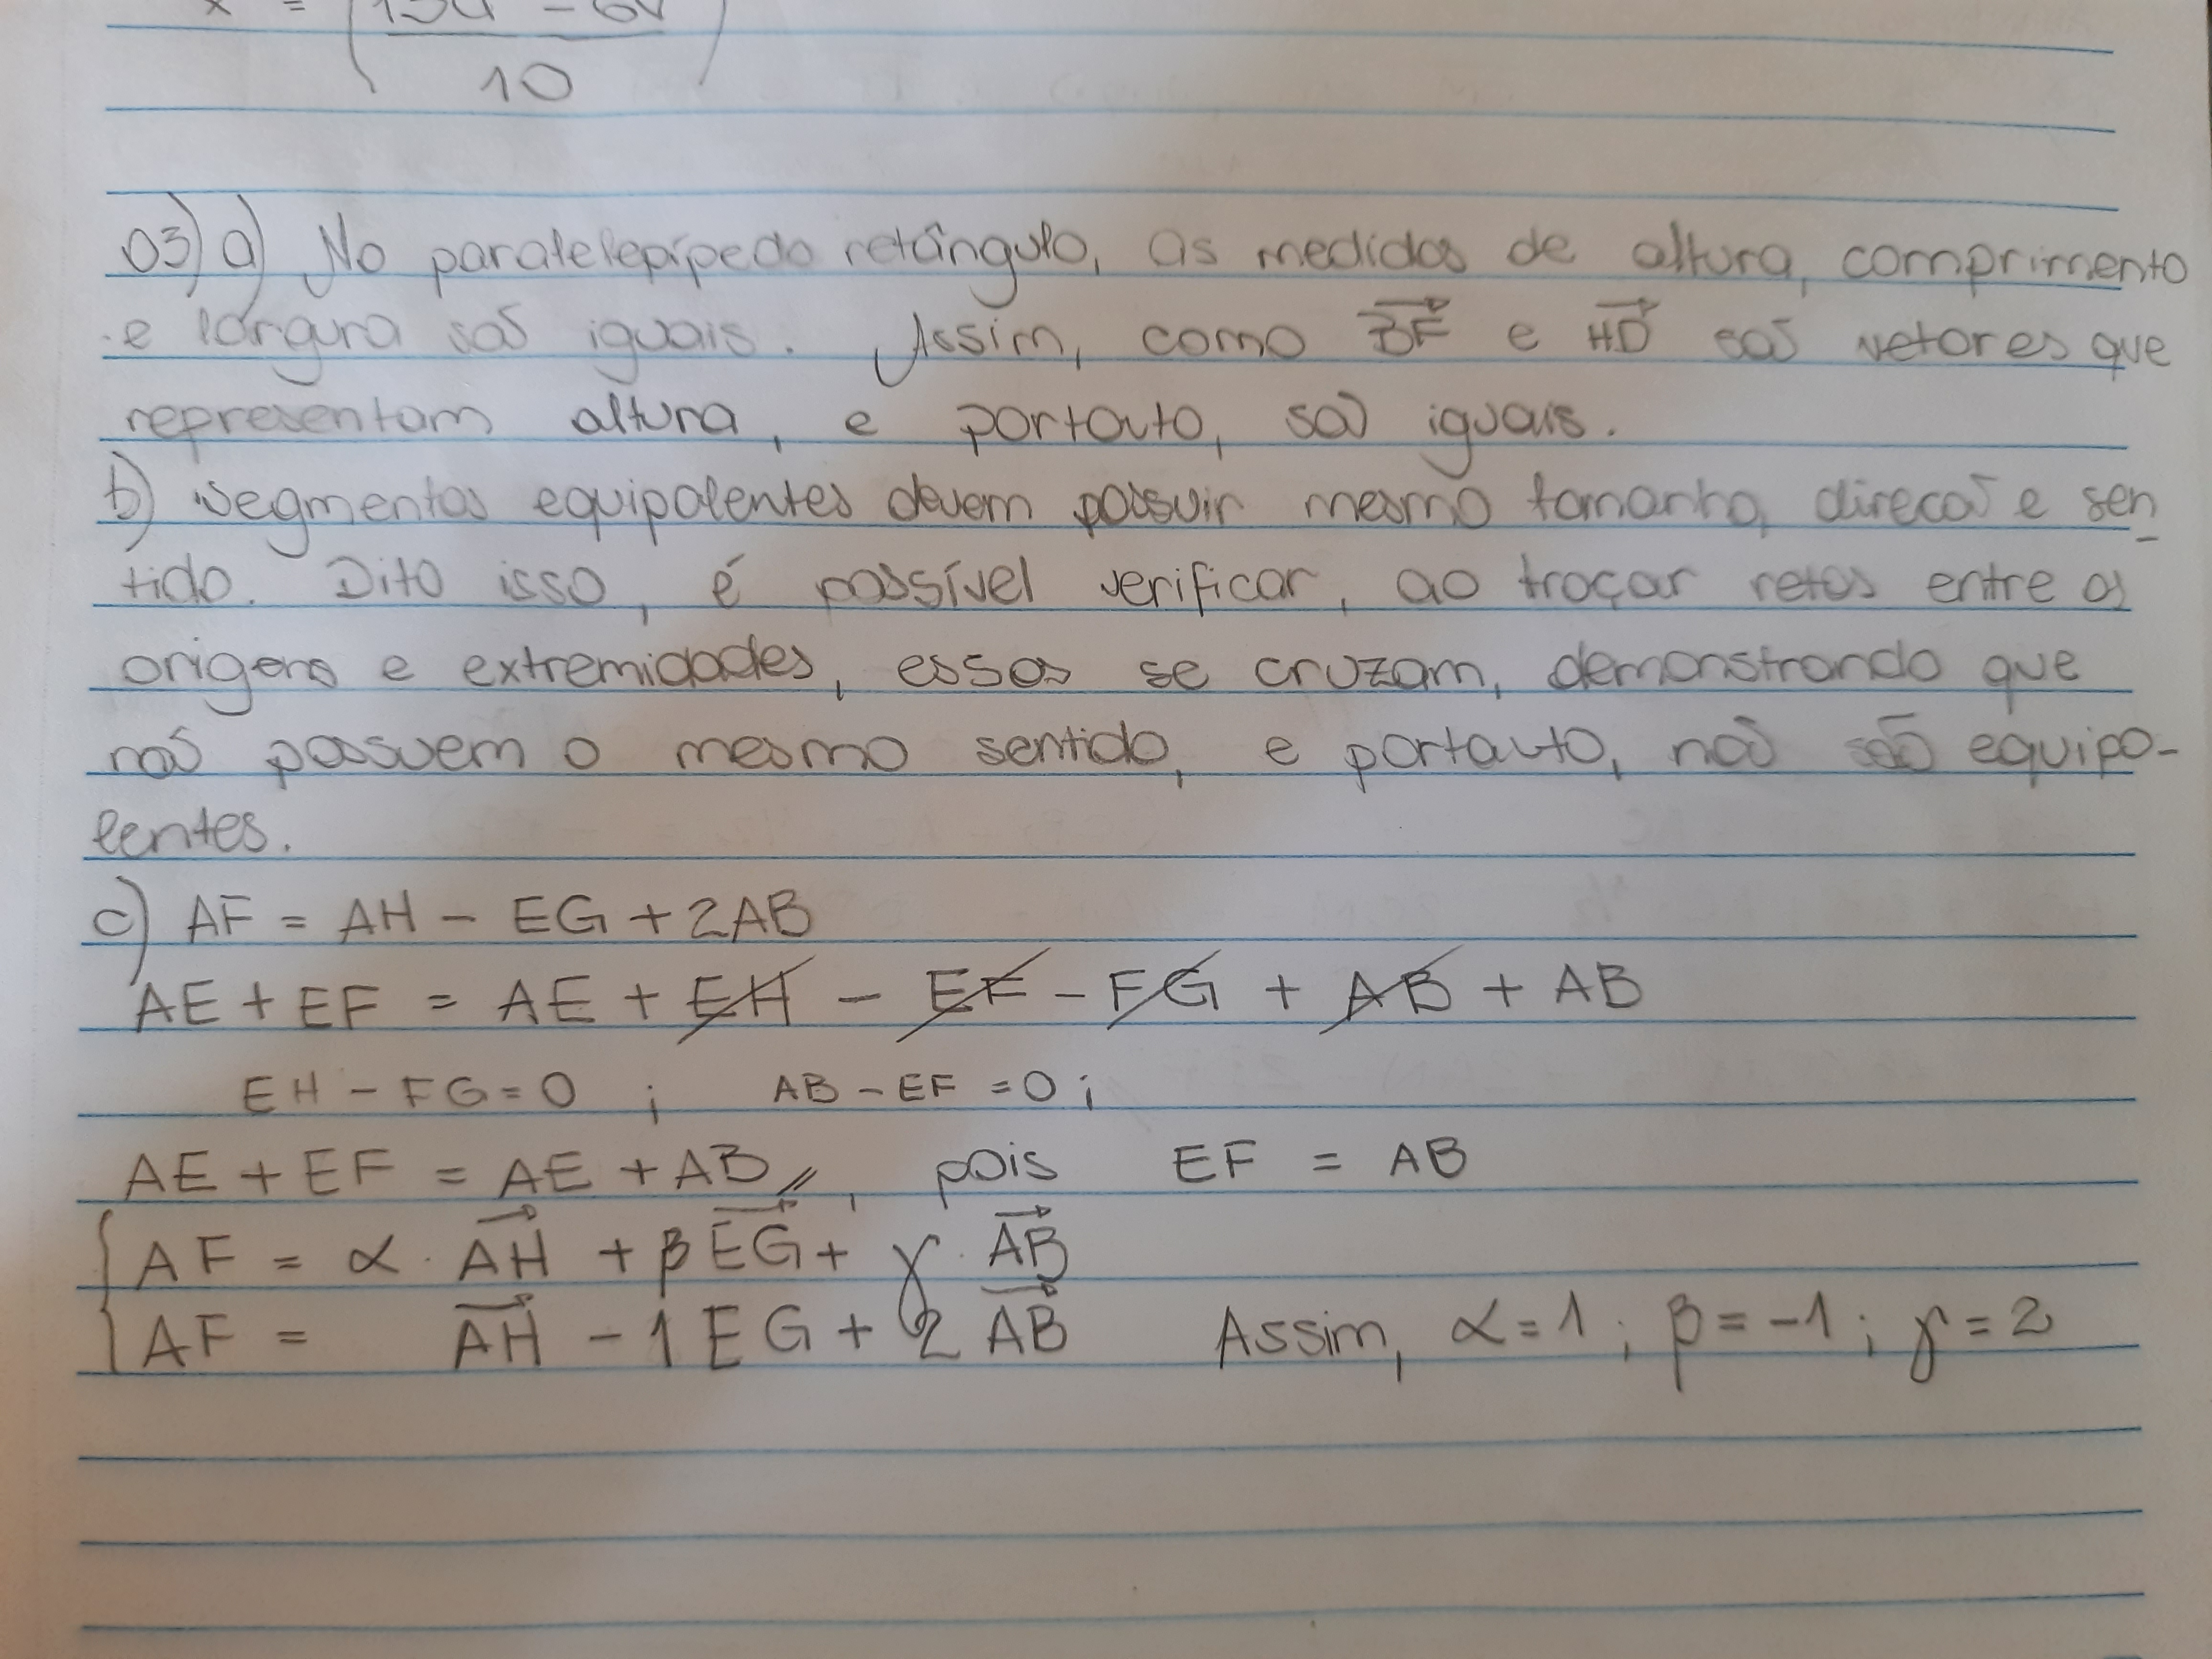 x = (15u - 6v
10
03) a) No paralelepípedo retângulo, as medidas de altura, comprimento
e largura são iguais. Assim, como BF e HD são vetores que
representam altura, e portanto, são iguais.
b) Segmentos equipolentes devem possuir mesmo tamanho, direção e sen-
tido. Dito isso, é possível verificar, ao traçar retas entre as
origens e extremidades, essas se cruzam, demonstrando que
não possuem o mesmo sentido, e portanto, não são equipo-
lentes.
c) AF = AH - EG + 2AB
AE + EF = AE + EH - EF - FG + AB + AB
EH - FG = 0 ; AB - EF = 0 ;
AE + EF = AE + AB //, pois EF = AB
AF = α · AH + β EG + γ · AB
AF = AH - 1 EG + 2 AB Assim, α = 1 ; β = -1 ; γ = 2